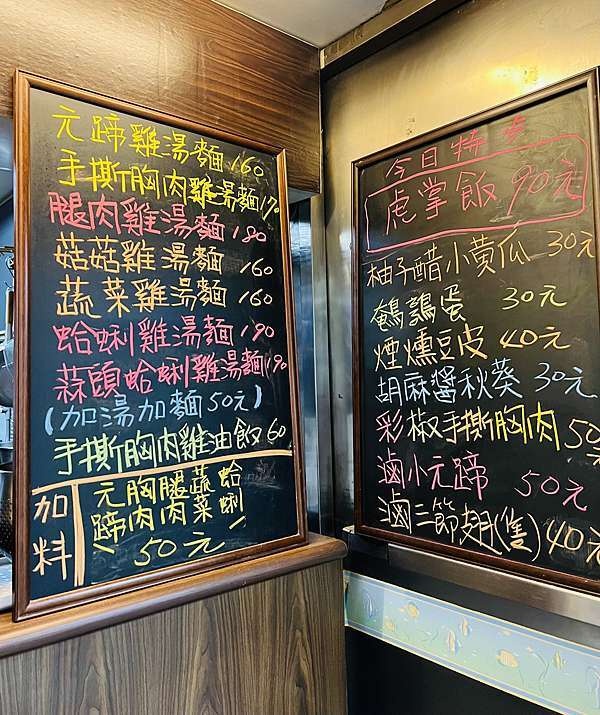 元蹄雞湯麵160
手撕胸肉雞湯麵170
腿肉雞湯麵190
菇菇雞湯麵160
蔬菜雞湯麵160
蛤蜊雞湯麵190
蒜頭蛤蜊雞湯麵190
(加湯加麵50元)
手撕胸肉雞油飯60
加料
元蹄 胸肉 腿肉 蔬菜 蛤蜊
50元
今日特步
虎掌飯90元
柚子醋小黄瓜 30元
鵪鶉蛋 30元
煙燻豆皮40元
胡麻醬秋葵 30元
彩椒手撕胸肉50元
滷小元蹄 50元
滷二節翅(隻)40元